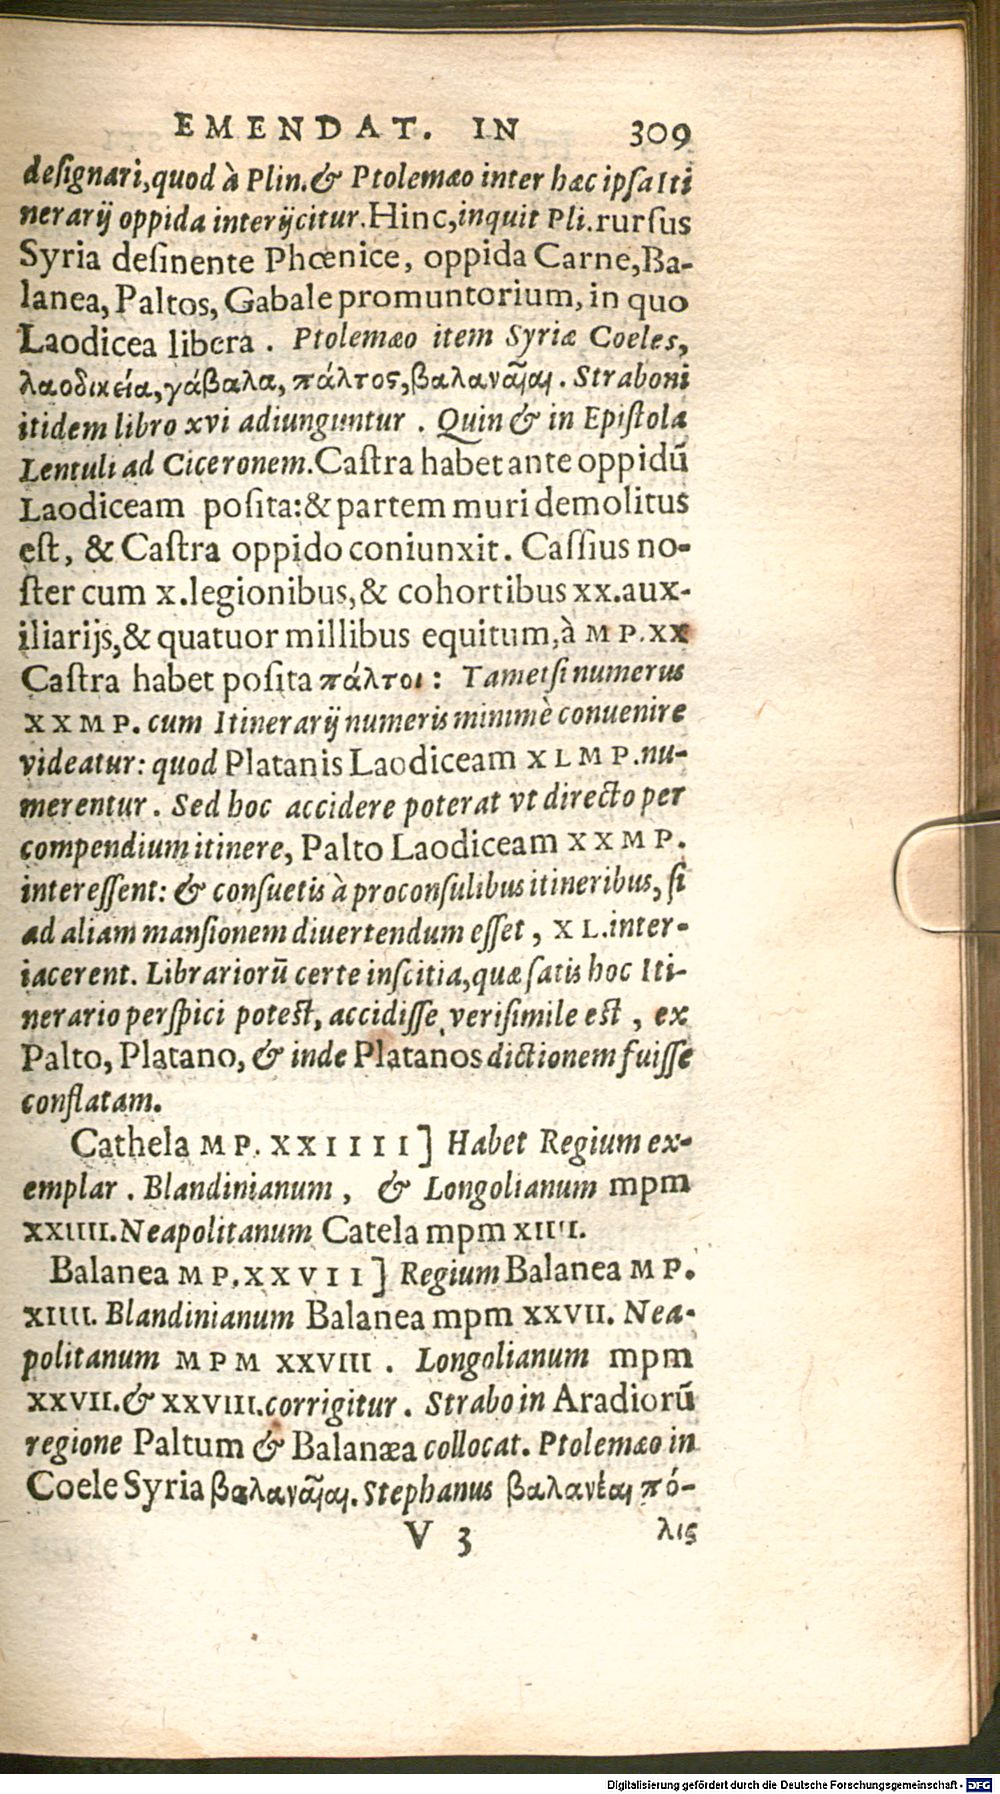 EMENDAT. IN 309
deſignari,quod à Plin.& Ptolemæo inter hæc ipſa Iti
nerarij oppida interijcitur. Hinc,inquit Pli.rurſus
Syria deſinente Phœnice, oppida Carne,Ba-
lanea, Paltos, Gabale promuntorium, in quo
Laodicea libera . Ptolemæo item Syriæ Coeles,
λαοδικεία,γάβαλα, πάλτος,βαλαναῖαι. Straboni
itidem libro xvi adiunguntur . Quin & in Epiſtola
Lentuli ad Ciceronem.Caſtra habet ante oppidū
Laodiceam poſita:& partem muri demolitus
eſt, & Caſtra oppido coniunxit. Caſſius no-
ſter cum x.legionibus,& cohortibus xx.aux-
iliarijs,& quatuor millibus equitum,à MP.XX
Caſtra habet poſita πάλτοι : Tametſi numerus
XXMP. cum Itinerarij numeris minimè conuenire
videatur: quod Platanis Laodiceam XLMP.nu-
merentur . Sed hoc accidere poterat vt directo per
compendium itinere, Palto Laodiceam XXMP.
intereſſent: & conſuetis à proconſulibus itineribus, ſi
ad aliam manſionem diuertendum eſſet , XL.inter-
iacerent. Librariorū certe inſcitia,quæ ſatis hoc Iti-
nerario perſpici poteſt, accidiſſe veriſimile eſt , ex
Palto, Platano, & inde Platanos dictionem fuiſſe
conflatam.
Cathela MP. XXIIII] Habet Regium ex-
emplar . Blandinianum , & Longolianum mpm
xxiiii. Neapolitanum Catela mpm xiiii.
Balanea MP.XXVII] Regium Balanea MP.
xiiii. Blandinianum Balanea mpm xxvii. Nea-
politanum MPM xxviii . Longolianum mpm
xxvii.& xxviii.corrigitur . Strabo in Aradiorū
regione Paltum & Balanæa collocat. Ptolemæo in
Coele Syria βαλαναῖαι. Stephanus βαλανέαι πό-
V 3 λις
Digitalisierung gefördert durch die Deutsche Forschungsgemeinschaft - DFG